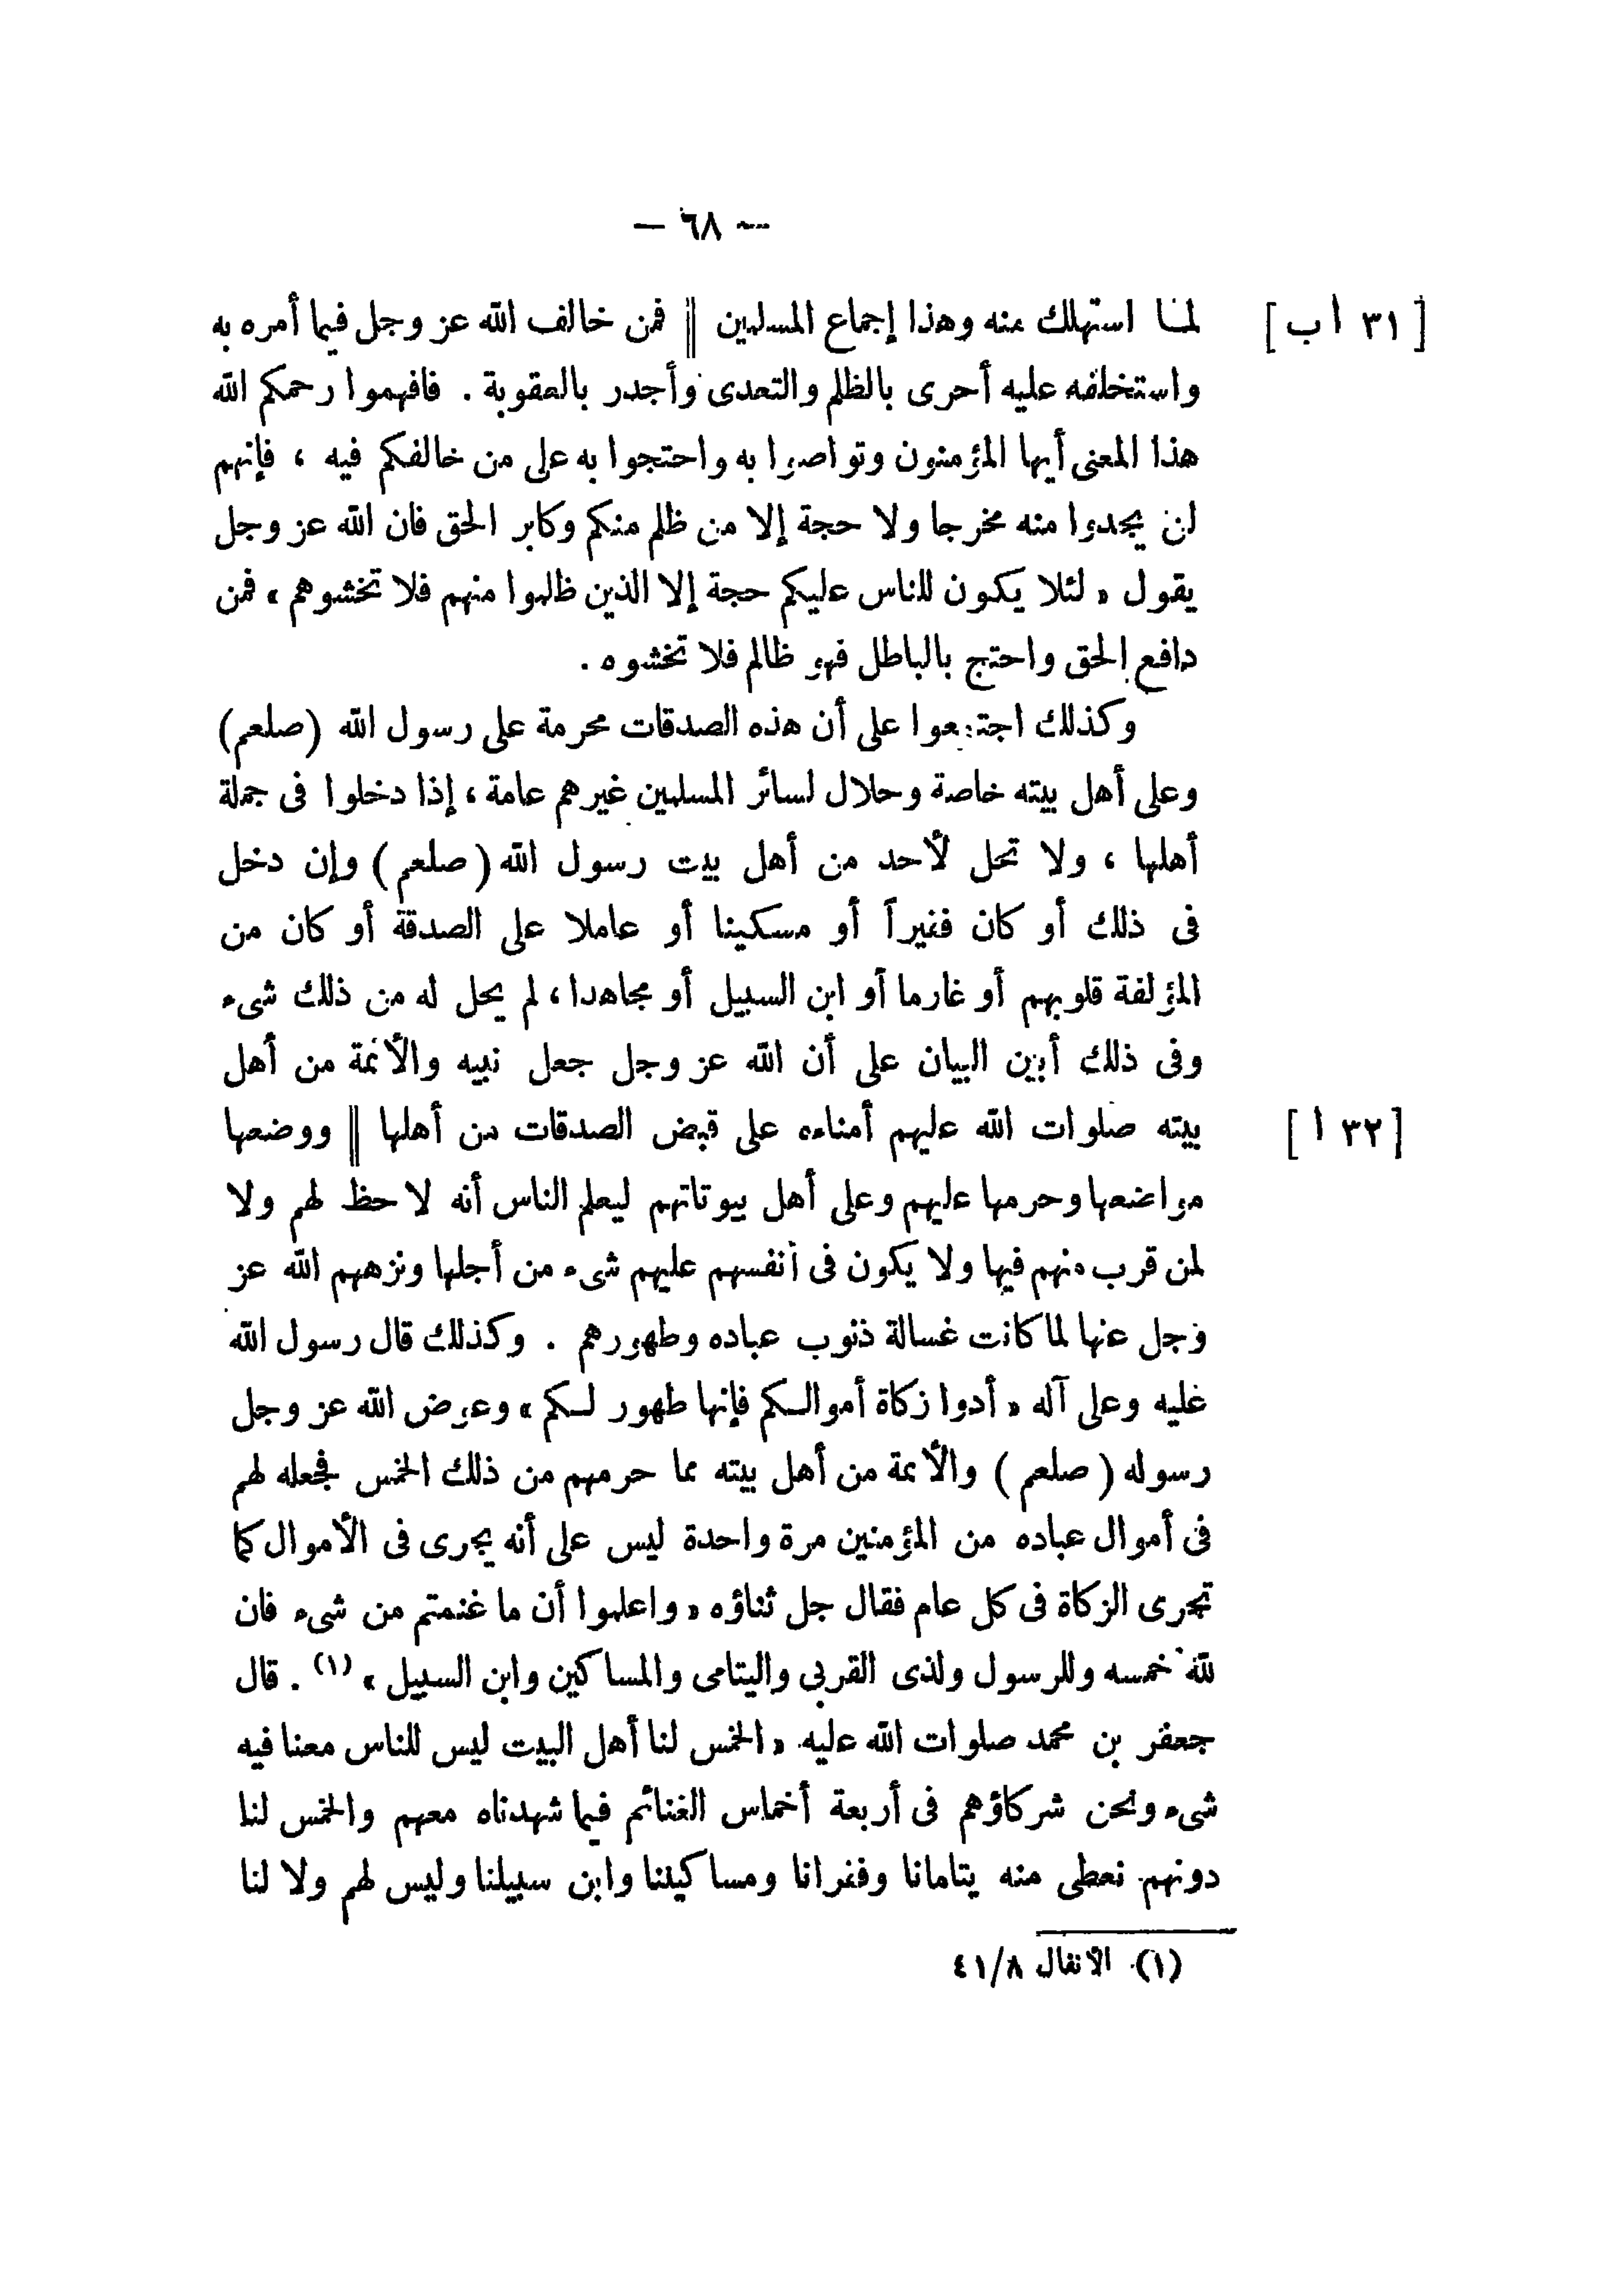 — ٦٨ —
[ ٣١ ا ب ] لمـا استهلك منه وهذا إجماع المسلمين || فمن خالف الله عز وجل فيما أمره به
واستخلفه عليه أحرى بالظلم والتعدى وأجدر بالعقوبة . فافهموا رحمكم الله
هذا المعنى أيها المؤمنون وتواصوا به واحتجوا به على من خالفكم فيه ، فإنهم
لن يجدوا منه مخرجا ولا حجة إلا من ظلم منكم وكابر الحق فان الله عز وجل
يقول « لئلا يكون للناس عليكم حجة إلا الذين ظلموا منهم فلا تخشوهم » فمن
دافع الحق واحتج بالباطل فهو ظالم فلا تخشوه .
وكذلك اجتمعوا على أن هذه الصدقات محرمة على رسول الله (صلعم)
وعلى أهل بيته خاصة وحلال لسائر المسلمين غيرهم عامة ، إذا دخلوا فى جملة
أهلها ، ولا تحل لأحد من أهل بيت رسول الله ( صلعم ) وإن دخل
فى ذلك أو كان فقيراً أو مسكينا أو عاملا على الصدقة أو كان من
المؤلفة قلوبهم أو غارما أو ابن السبيل أو مجاهدا ، لم يحل له من ذلك شىء
وفى ذلك أبين البيان على أن الله عز وجل جعل نبيه والأئمة من أهل
[ ٣٢ ا ] بيته صلوات الله عليهم أمناءه على قبض الصدقات من أهلها || ووضعها
مواضعها وحرمها عليهم وعلى أهل بيوتاتهم ليعلم الناس أنه لا حظ لهم ولا
لمن قرب منهم فيها ولا يكون فى أنفسهم عليهم شىء من أجلها ونزههم الله عز
وجل عنها لما كانت غسالة ذنوب عباده وطهورهم . وكذلك قال رسول الله
عليه وعلى آله « أدوا زكاة أموالـكم فإنها طهور لـكم » وعوض الله عز وجل
رسوله ( صلعم ) والأئمة من أهل بيته مما حرمهم من ذلك الخمس فجعله لهم
فى أموال عباده من المؤمنين مرة واحدة ليس على أنه يجرى فى الأموال كما
تجرى الزكاة فى كل عام فقال جل ثناؤه « واعلموا أن ما غنمتم من شىء فان
لله خمسه وللرسول ولذى القربى واليتامى والمساكين وابن السبيل » (١) . قال
جعفر بن محمد صلوات الله عليه « الخمس لنا أهل البيت ليس للناس معنا فيه
شىء ونحن شركاؤهم فى أربعة أخماس الغنائم فيما شهدناه معهم والخمس لنا
دونهم نعطى منه يتامانا وفقرانا ومساكيننا وابن سبيلنا وليس لهم ولا لنا
(١) الأنفال ٤١/٨